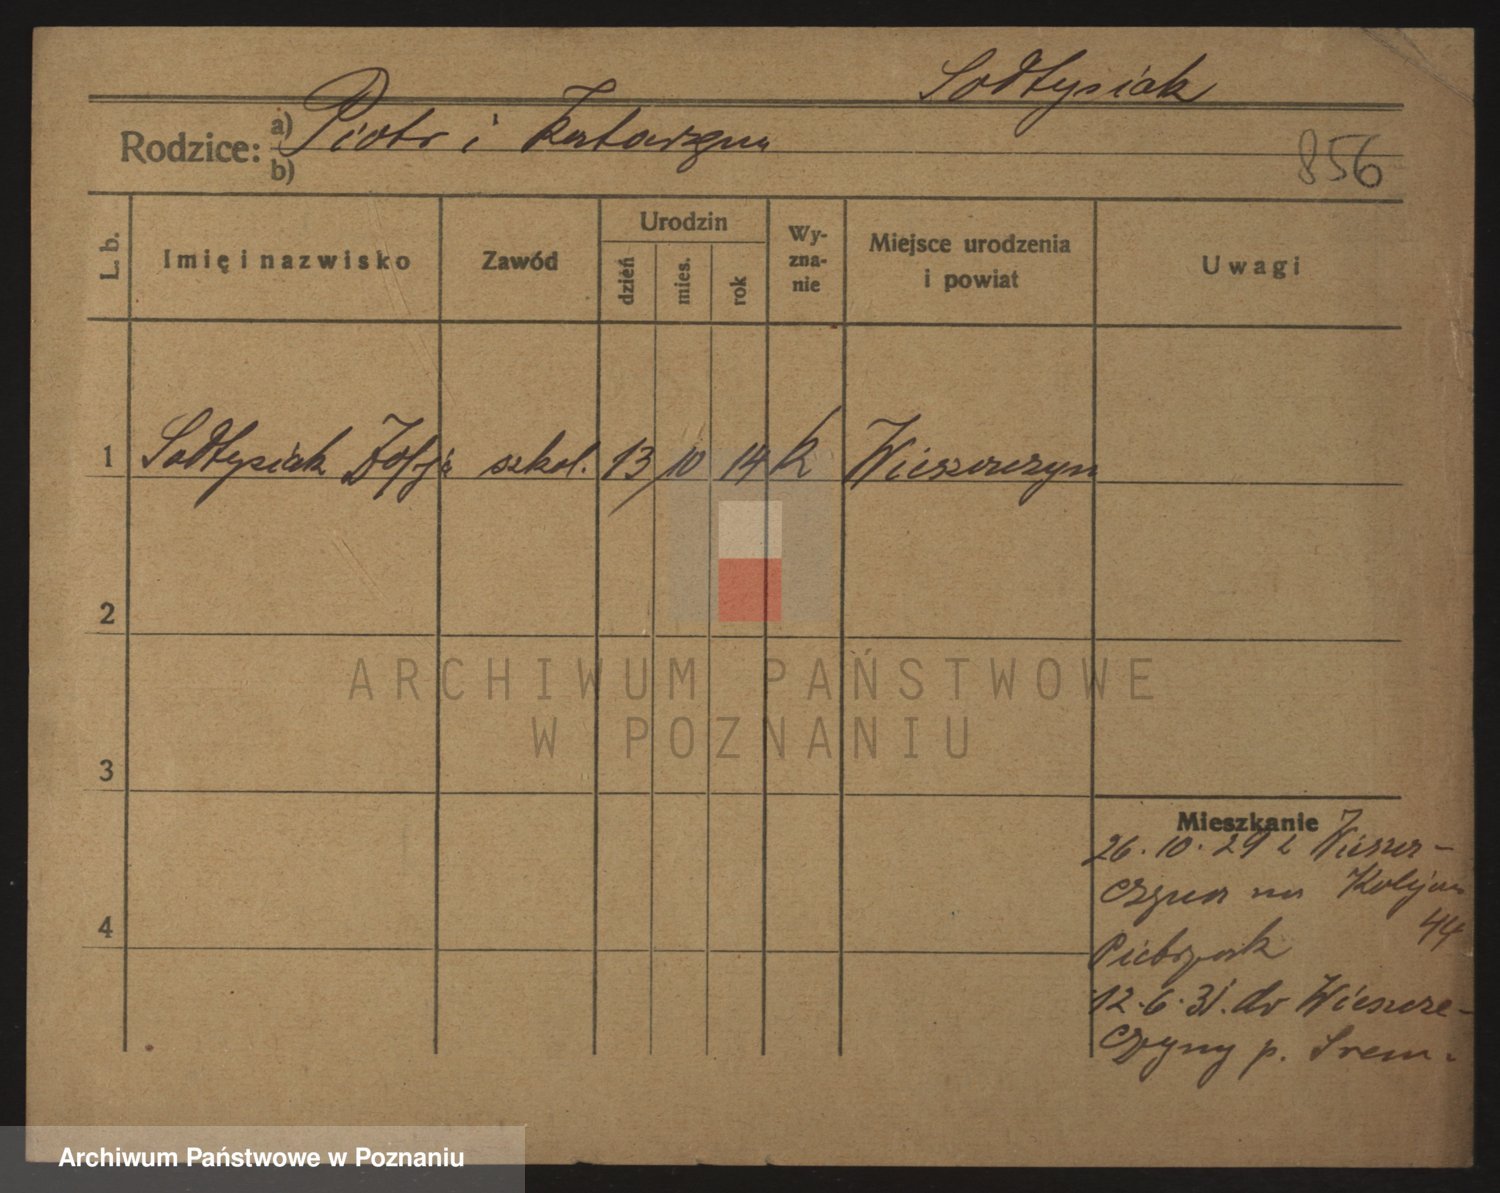 Sołtysiak
Rodzice: a) Piotr i Katarzyna
b)
856
L. b.
Imię i nazwisko
Zawód
Urodzin
dzień
mies.
rok
Wy-
zna-
nie
Miejsce urodzenia
i powiat
Uwagi
1 Sołtysiak Zofja szkol. 13 10 14 k Wieszczyczyn
2
3
4
Mieszkanie
26.10.29 z Wieszcz-
czyna na
44
12.6.31. do Wieszcze-
czyny p. Śrem.
ARCHIWUM PAŃSTWOWE
W POZNANIU
Archiwum Państwowe w Poznaniu